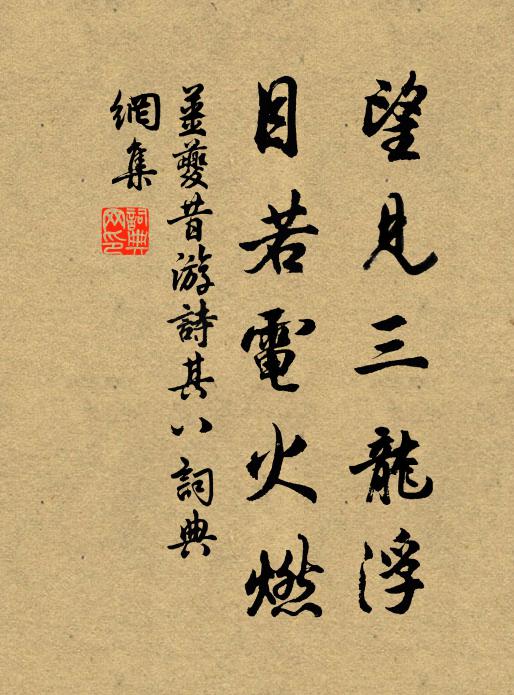 望見三龍浮
目若電火燃
姜夔昔游詩其八詞典
網集
詞典
網印